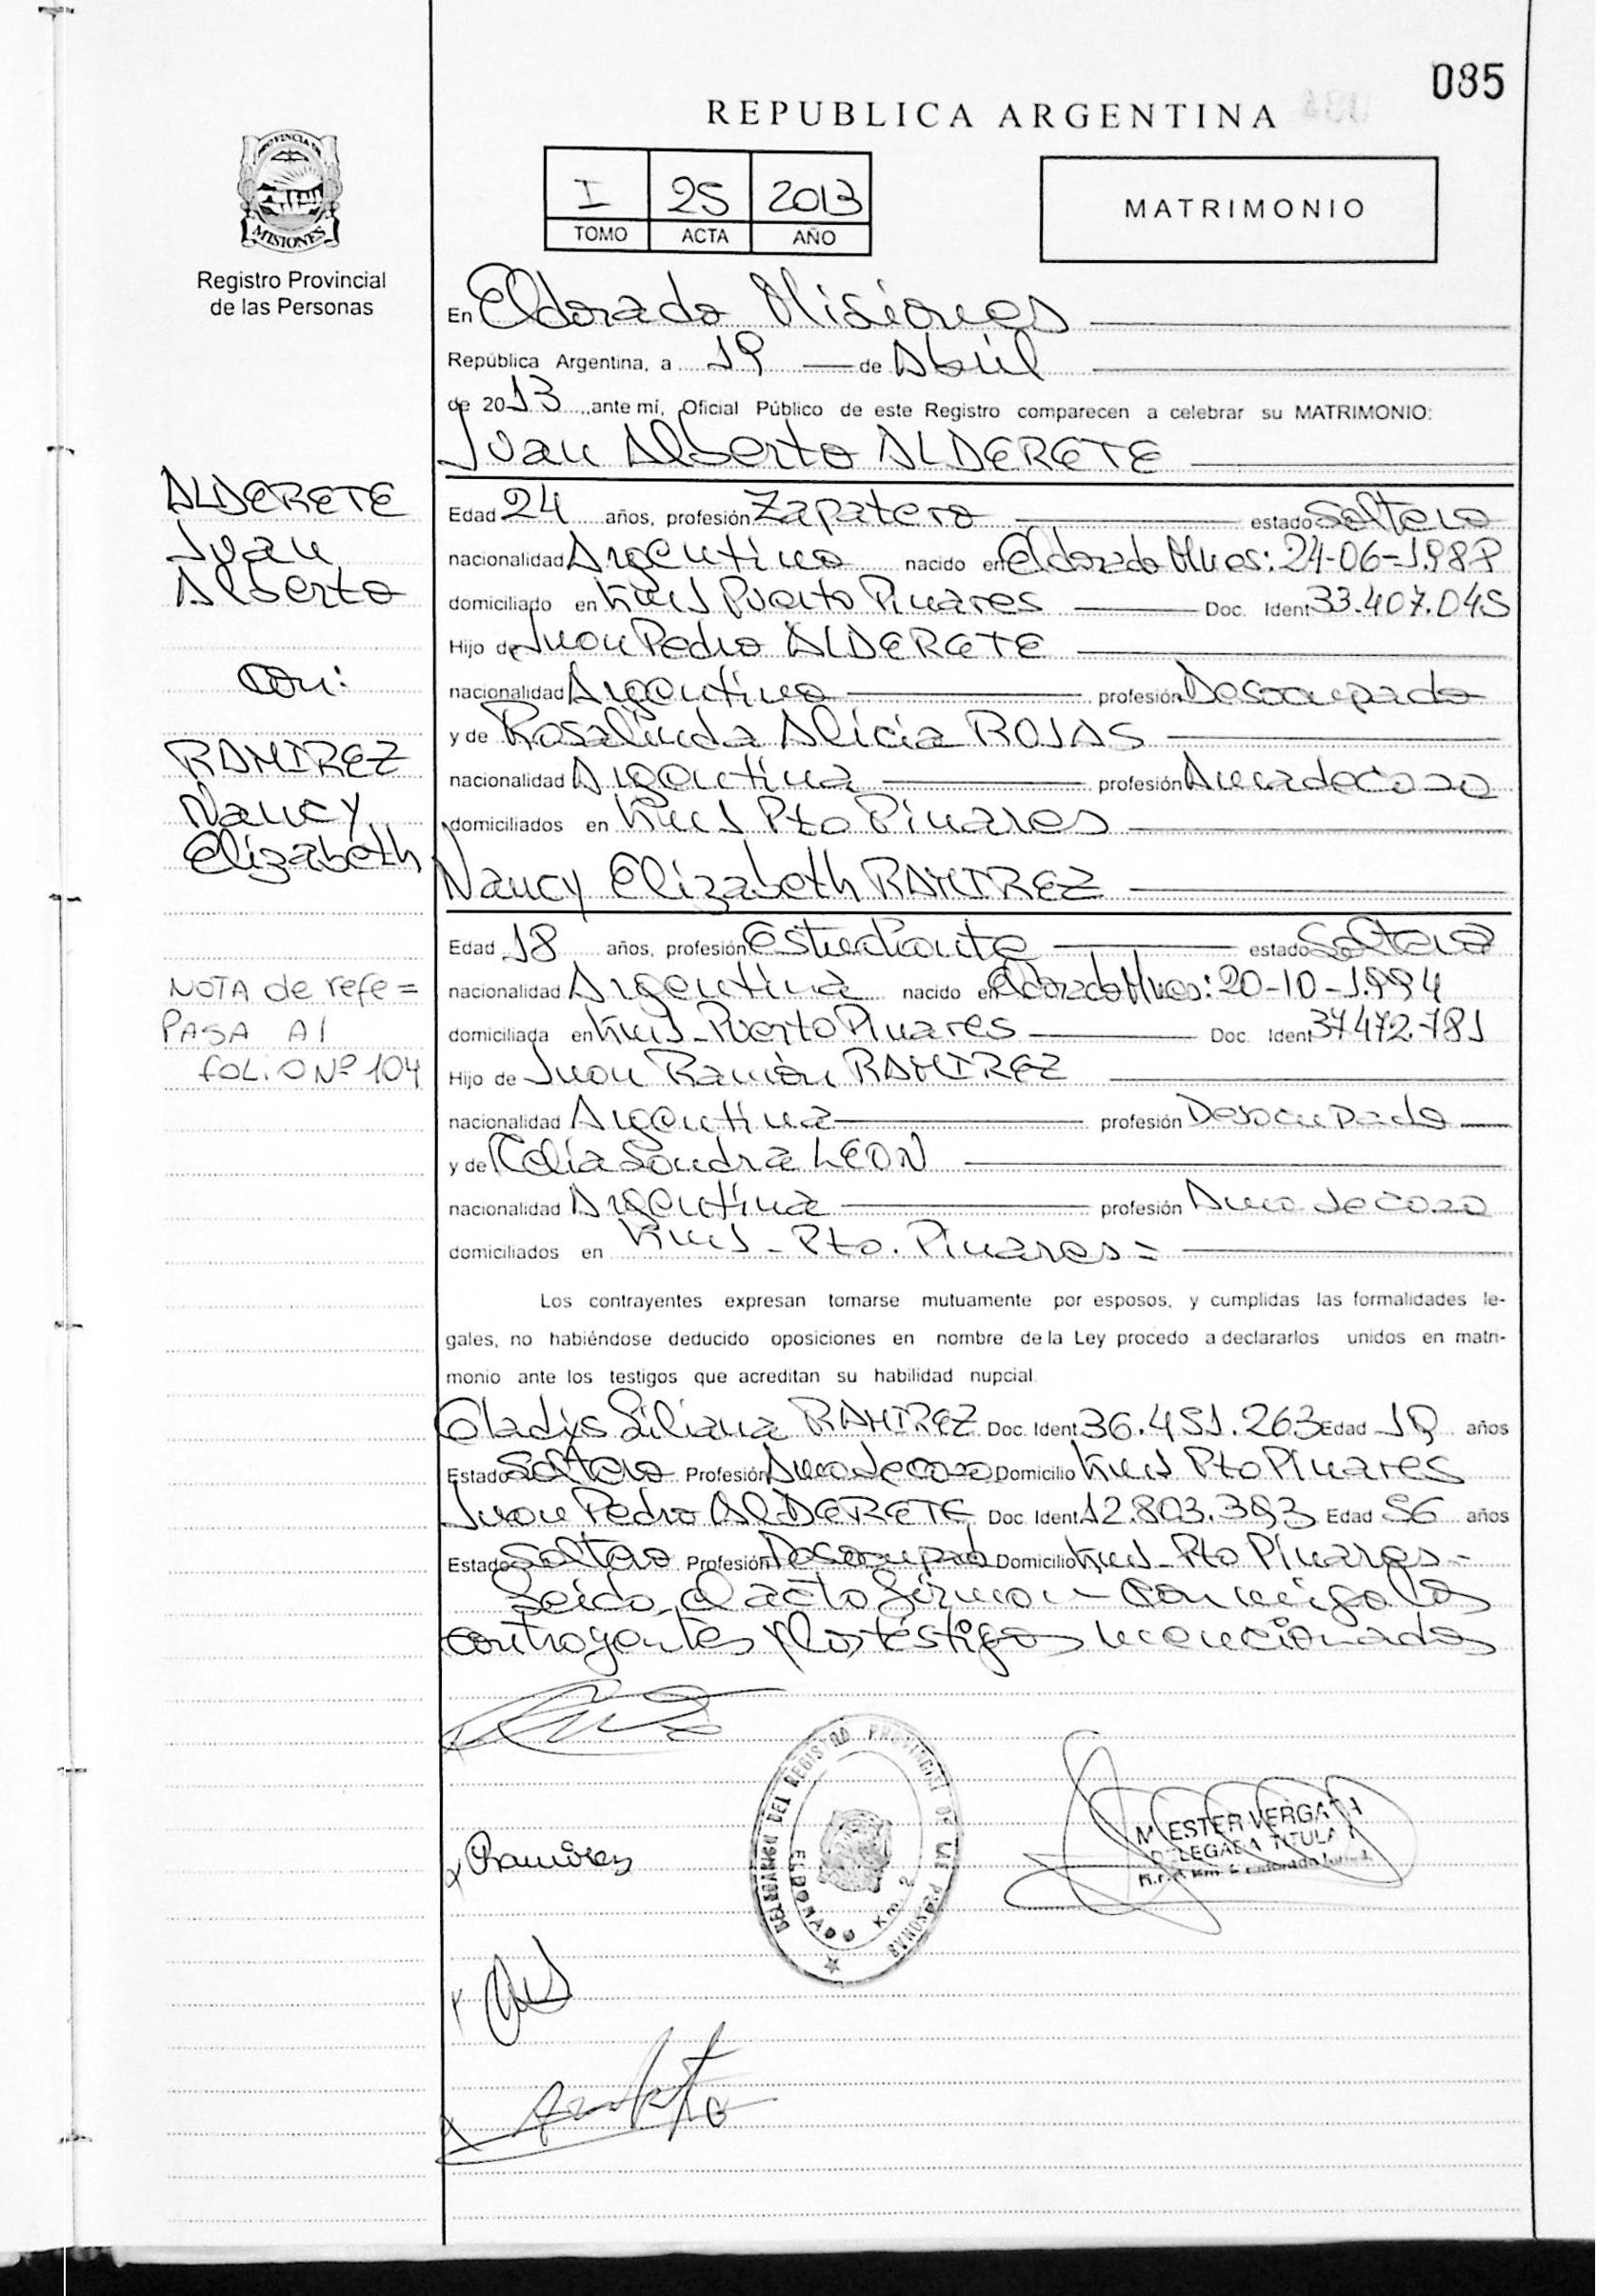 085
REPUBLICA ARGENTINA
PROVINCIA DE
MISIONES
Registro Provincial
de las Personas
I 25 2013
TOMO ACTA AÑO
MATRIMONIO
En Eldorado Misiones
República Argentina, a 19 de Abril
de 2013, ante mí, Oficial Público de este Registro comparecen a celebrar su MATRIMONIO:
Juan Alberto ALDERETE
ALDERETE
Juan
Alberto
con:
RAMIREZ
Nancy
Elizabeth
NOTA de refe =
PASA Al
FOLIO Nº 104
Edad 24 años, profesión Zapatero estado Soltero
nacionalidad Argentino nacido en Eldorado Mnes: 24-06-1.988
domiciliado en Km1 Puerto Pinares Doc. Ident 33.407.045
Hijo de Juan Pedro ALDERETE
nacionalidad Argentino profesión Desocupado
y de Rosalinda Alicia ROJAS
nacionalidad Argentina profesión Ama de casa
domiciliados en Km1 Pto Pinares
Nancy Elizabeth RAMIREZ
Edad 18 años, profesión Estudiante estado Soltera
nacionalidad Argentina nacido en Eldorado Mnes: 20-10-1.994
domiciliada en Km1 - Puerto Pinares Doc. Ident 37.472.781
Hijo de Juan Ramón RAMIREZ
nacionalidad Argentina profesión Desocupado
y de Celia Sandra LEON
nacionalidad Argentina profesión Ama de casa
domiciliados en Km1 - Pto. Pinares =
Los contrayentes expresan tomarse mutuamente por esposos, y cumplidas las formalidades le-
gales, no habiéndose deducido oposiciones en nombre de la Ley procedo a declararlos unidos en matri-
monio ante los testigos que acreditan su habilidad nupcial.
Gladys Liliana RAMIREZ Doc. Ident 36.451.263 Edad 19 años
Estado Soltera Profesión Ama de casa Domicilio Km1 Pto Pinares
Juan Pedro ALDERETE Doc. Ident 12.803.393 Edad 56 años
Estado Soltero Profesión Desocupado Domicilio Km1 - Pto Pinares -
Leida el acta firman conmigo los
contrayentes y los testigos mencionados
DELEGACION DEL REGISTRO PROVINCIAL DE LAS PERSONAS
ELDORADO Km. 2
Ramirez
M ESTER VERGARA
DELEGADA TITULAR